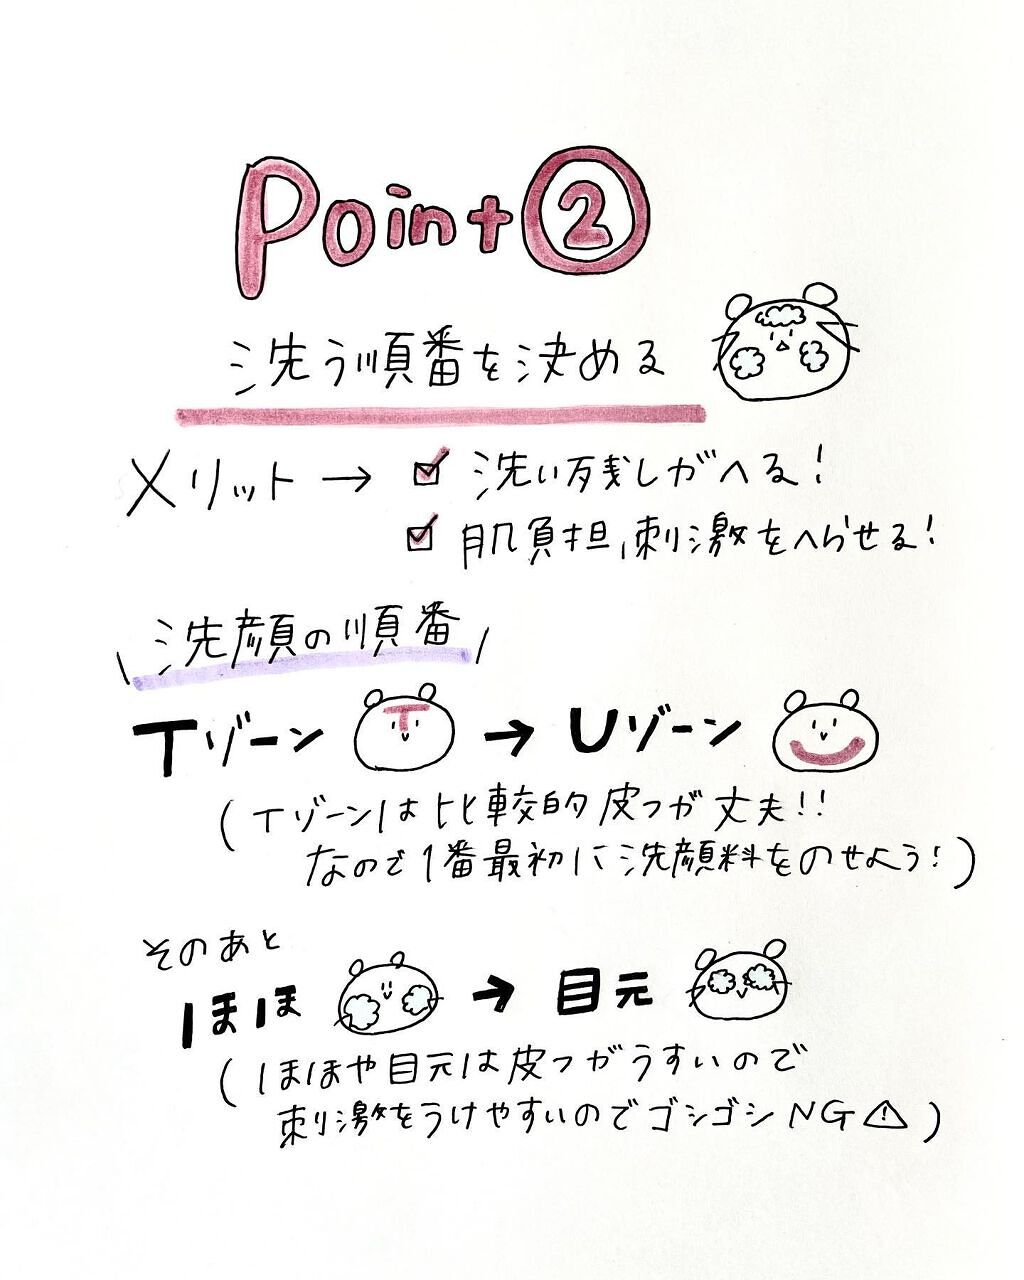 Point②
洗う順番を決める
メリット → ☑ 洗い残しがへる!
☑ 肌負担,刺激をへらせる!
\ 洗顔の順番 /
Tゾーン → Uゾーン
(Tゾーンは比較的皮フが丈夫!!
なので1番最初に洗顔料をのせよう!)
そのあと
ほほ → 目元
(ほほや目元は皮フがうすいので
刺激をうけやすいのでゴシゴシNG⚠)